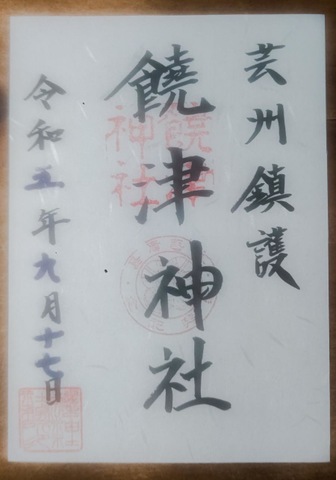 芸州鎮護
饒津神社
令和五年九月十七日